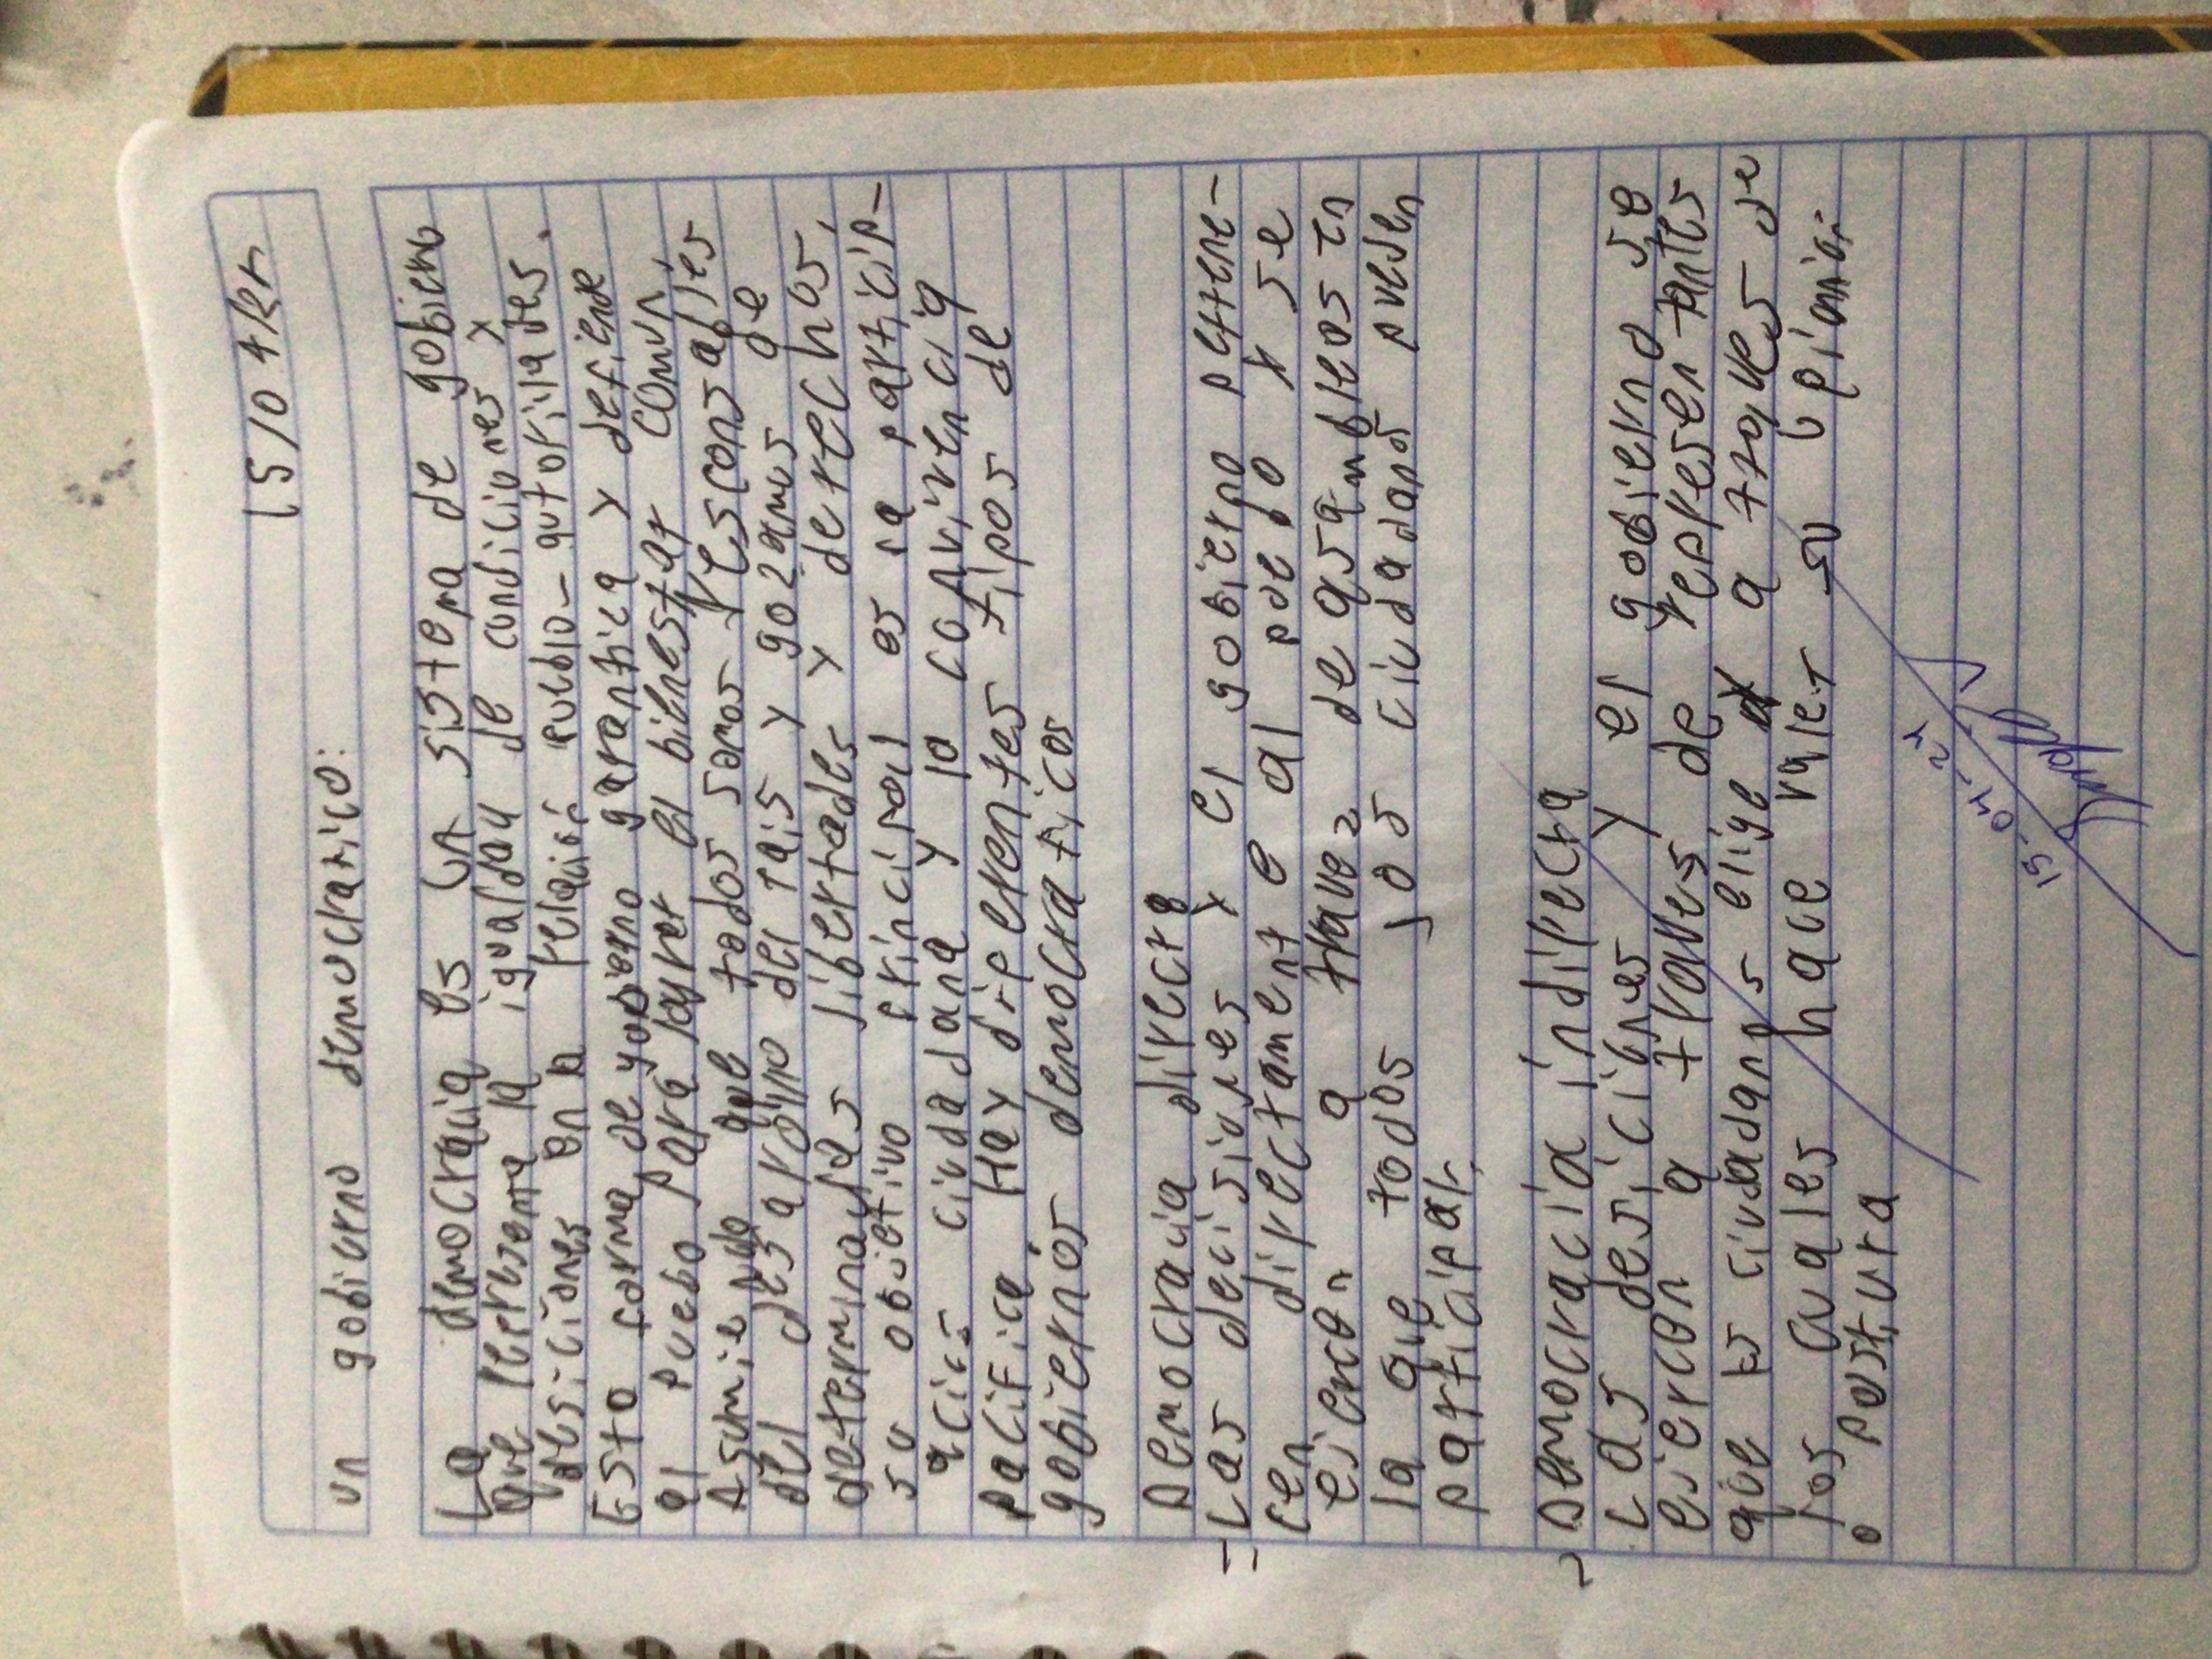 15/04/24
un gobierno democratico:
La democracia es un sistema de gobierno
que represema la igualdad de condiciones y
desiciones en la relación pueblo-autorilades.
Esto forma de gobierno garantica y defiende
al puebo para lograr el bienestar comun
Asumiendo que todos somos responsables
del desarollo del pais y gozamos de
determinadas libertades y derechos,
su objetivo principal es la particip-
ación ciudadana y la convivencia
pacifica. Hay diferentes tipos de
gobiernos democraticos
Democracia directa
- Las decisiones y el gobierno pertene-
cen directamente al pueblo y se
ejercen a travez de asambleas en
la que todos los ciudadanos pueden
participar.
- Democracia indirecta
Las desiciones y el gobierno se
ejercen a traves de representantes
que la ciudadana elige a traves de
los cuales hace valer su opinion
o postura
15-04-24